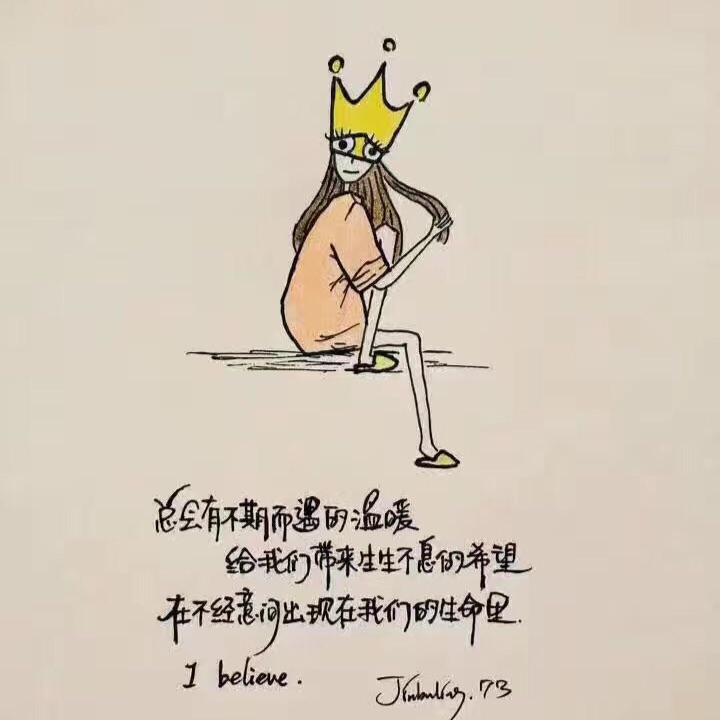 总会有不期而遇的温暖
给我们带来生生不息的希望
在不经意间出现在我们的生命里.
I believe.
.73